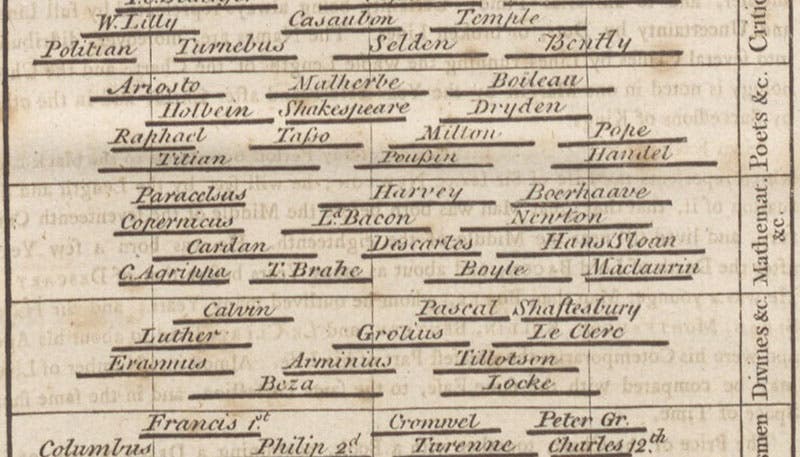 W. Lilly Casaubon Temple
Politian Turnebus Selden Bently
Ariosto Malherbe Boileau
Holbein Shakespeare Dryden
Raphael Tasso Milton Pope
Titian Poussin Handel
Paracelsus Harvey Boerhaave
Copernicus Ld. Bacon Newton
Cardan Descartes Hans Sloan
C. Agrippa T. Brahe Boyle Maclaurin
Calvin Pascal Shaftesbury
Luther Grotius Le Clerc
Erasmus Arminius Tillotson
Beza Locke
Francis 1.st Cromwel Peter Gr.
Columbus Philip 2d Turenne Charles 12.th
Critic
Poets &c.
Mathemat. &c.
Divines &c.
smen